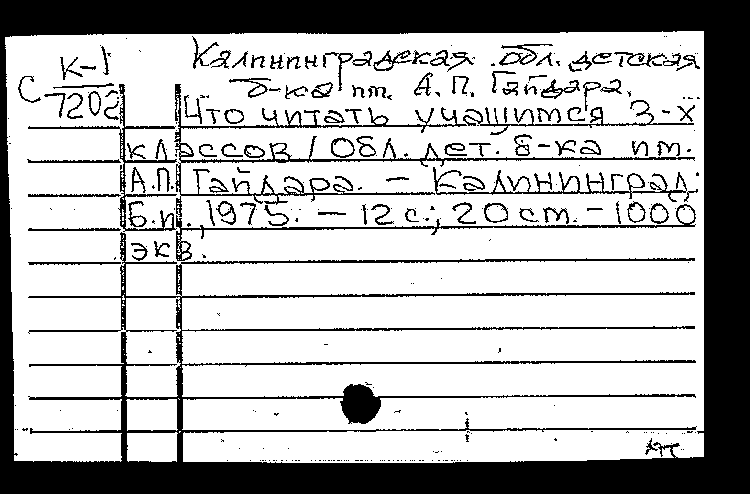 К-1
С
7202
Калининградская обл. детская
б-ка им. А.П. Гайдара.
Что читать учащимся 3-х
классов / Обл. дет. б-ка им.
А.П. Гайдара. — Калининград:
Б.и., 1975. — 12 с.; 20 см. — 1000
экз.